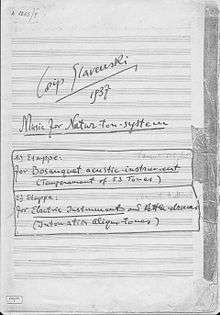 Josip Slavenski
1937
Music for Natur-ton-system
1) Etappe:
for Bosanquet acustic-instrument
(Temperament of 53 Tones)
2) Etappe:
for Electric Instrument and
(Intonation tones)